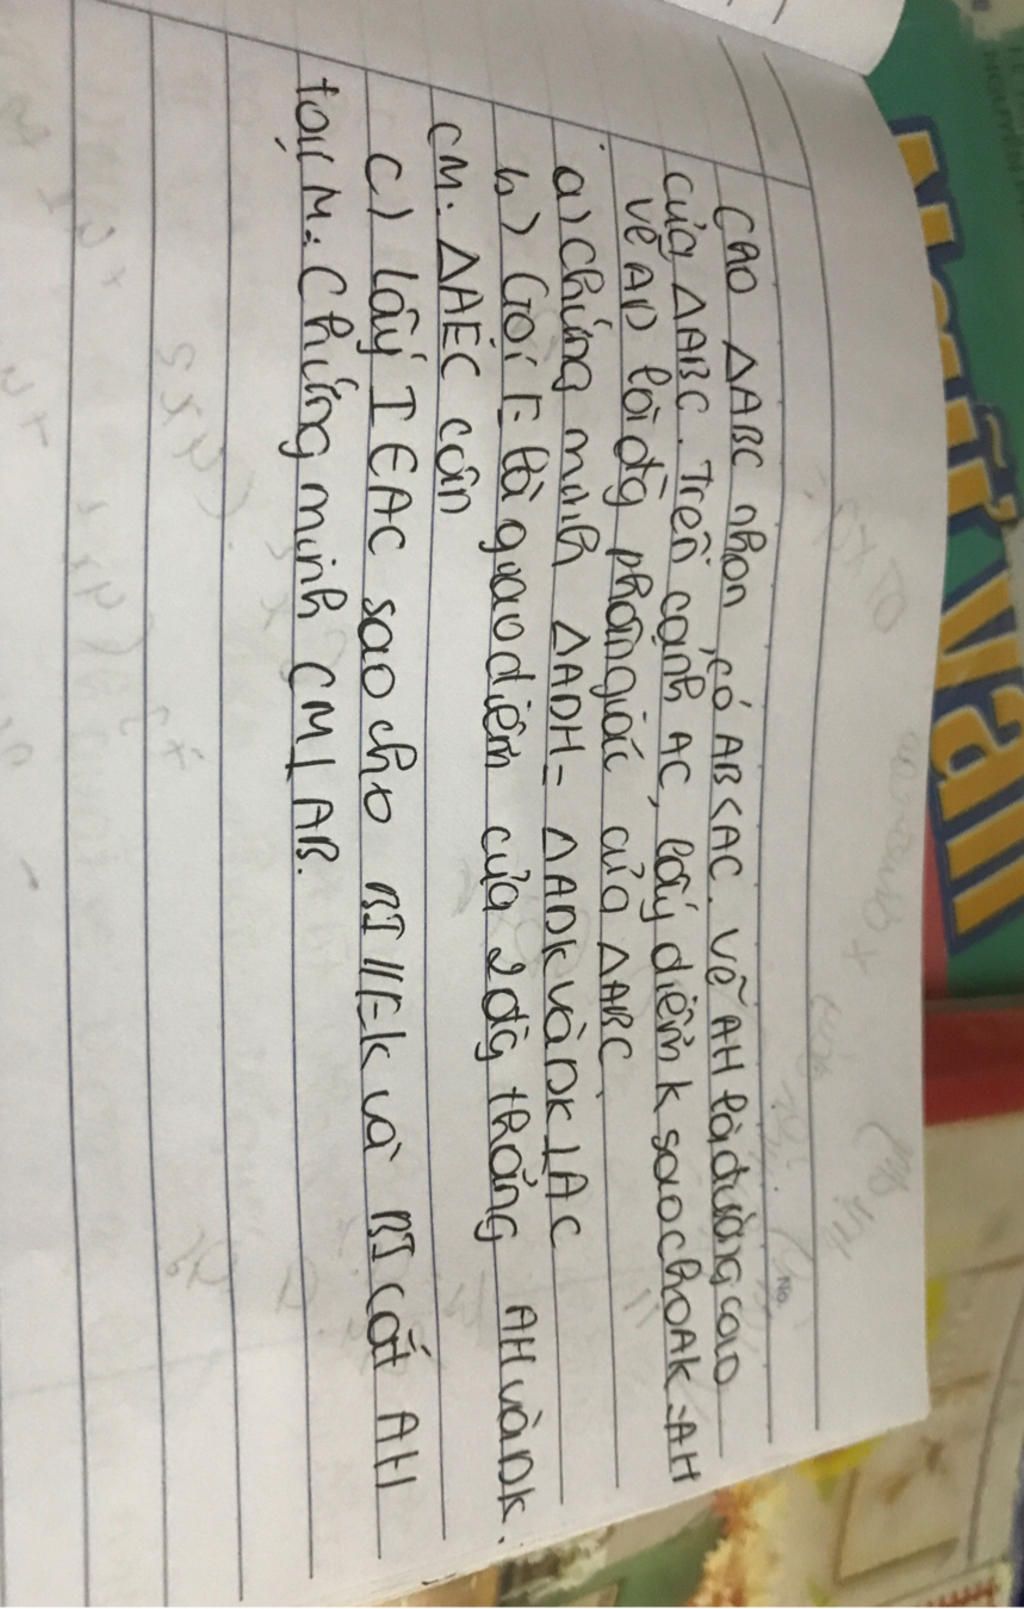 Cho △ABC nhọn, có AB<AC. Vẽ AH là đường cao
của △ABC. Trên cạnh AC, lấy điểm K sao cho AK=AH
vẽ AD là đg phân giác của △ABC.
a) Chứng minh △ADH = △ADK và DK⊥AC
b) Gọi E là giao điểm của 2 đg thẳng AH và DK.
CM: △AEC cân
c) Lấy I∈AC sao cho BI//EK và BI cắt AH
tại M: Chứng minh CM⊥AB.
No.